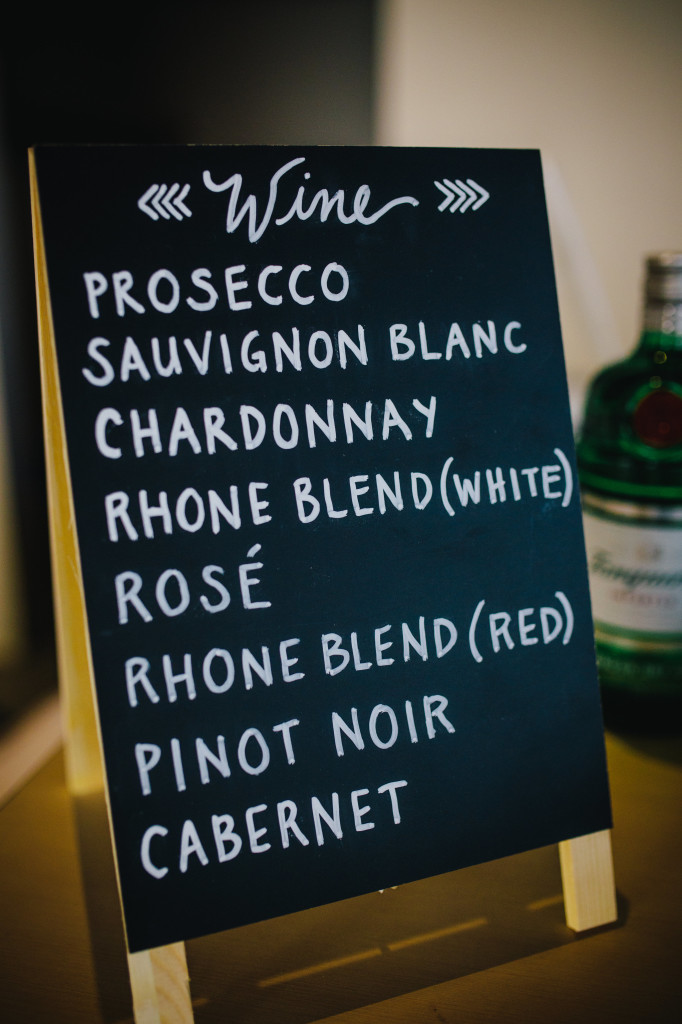 Wine
PROSECCO
SAUVIGNON BLANC
CHARDONNAY
RHONE BLEND (WHITE)
ROSÉ
RHONE BLEND (RED)
PINOT NOIR
CABERNET